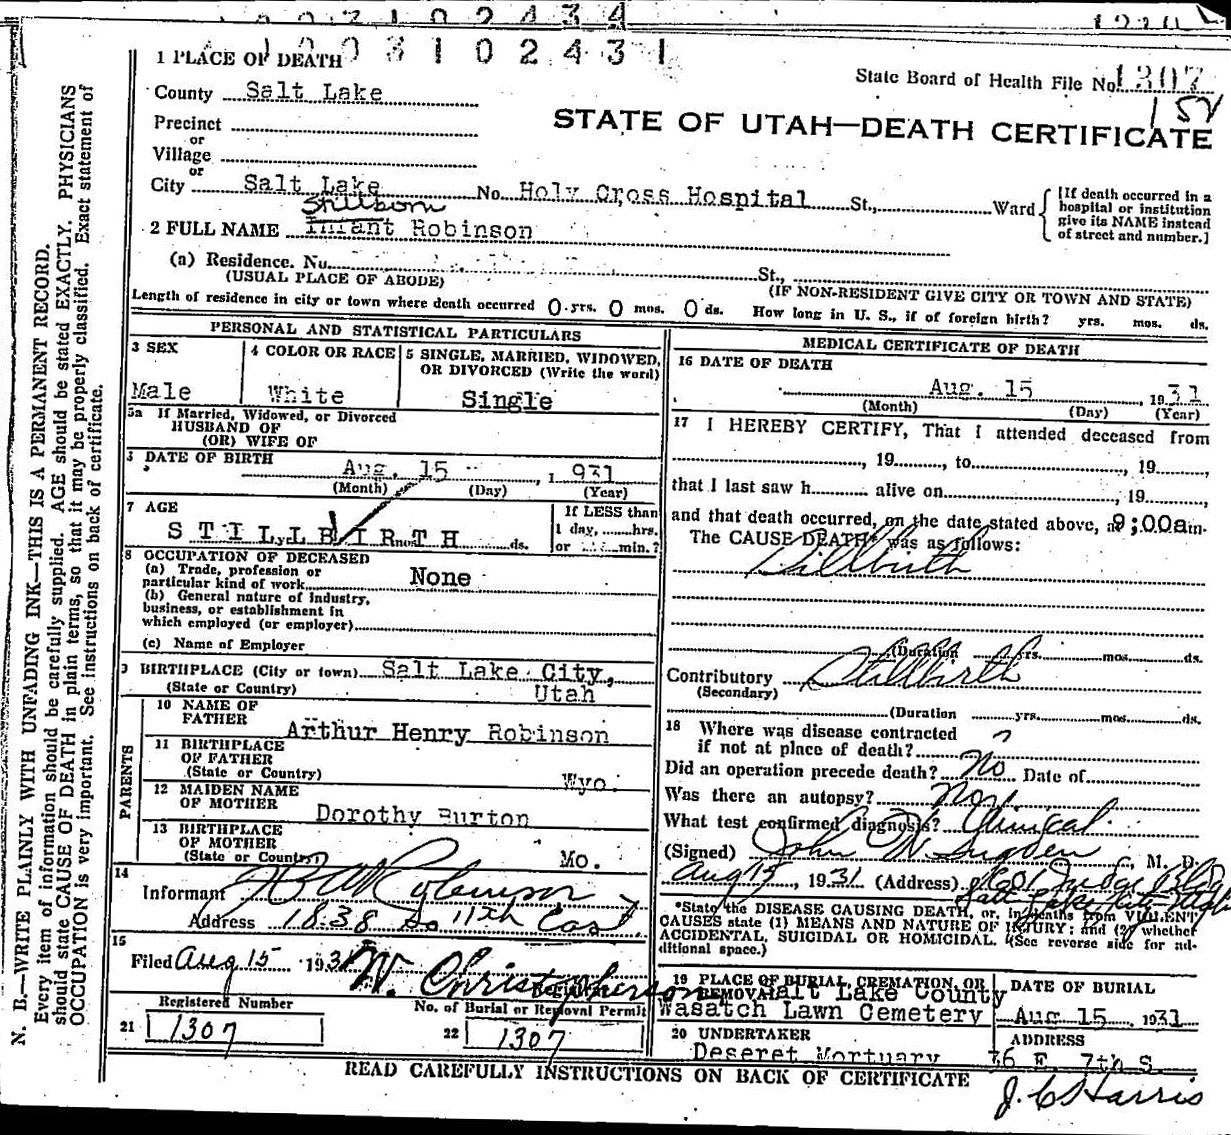 1 0 0 3 1 0 2 4 3 4
1 0 0 3 1 0 2 4 3 1
1 PLACE OF DEATH
State Board of Health File No. 1307
152
County Salt Lake
STATE OF UTAH—DEATH CERTIFICATE
Precinct
or
Village
or
City Salt Lake No. Holy Cross Hospital St., Ward
[If death occurred in a
hospital or institution
give its NAME instead
of street and number.]
Stillborn
2 FULL NAME Infant Robinson
(a) Residence. No. St.,
(USUAL PLACE OF ABODE) (IF NON-RESIDENT GIVE CITY OR TOWN AND STATE)
Length of residence in city or town where death occurred 0 yrs. 0 mos. 0 ds. How long in U. S., if of foreign birth? yrs. mos. ds.
PERSONAL AND STATISTICAL PARTICULARS
3 SEX
Male
4 COLOR OR RACE
White
5 SINGLE, MARRIED, WIDOWED,
OR DIVORCED (Write the word)
Single
5a If Married, Widowed, or Divorced
HUSBAND OF
(OR) WIFE OF
DATE OF BIRTH
Aug. 15 , 1 931
(Month) (Day) (Year)
7 AGE
S T I L L B I R T H ds.
If LESS than
1 day, hrs.
or min.?
8 OCCUPATION OF DECEASED
(a) Trade, profession or
particular kind of work None
(b) General nature of industry,
business, or establishment in
which employed (or employer)
(c) Name of Employer
9 BIRTHPLACE (City or town) Salt Lake City,
(State or Country) Utah
PARENTS
10 NAME OF
FATHER
Arthur Henry Robinson
11 BIRTHPLACE
OF FATHER
(State or Country) Wyo.
12 MAIDEN NAME
OF MOTHER
Dorothy Burton
13 BIRTHPLACE
OF MOTHER
(State or Country) Mo.
14
Informant Robinson
Address 1838 So 11th East
15
Filed Aug 15 1931 W. Christopherson
Registrar
Registered Number
21 1307
No. of Burial or Removal Permit
22 1307
MEDICAL CERTIFICATE OF DEATH
16 DATE OF DEATH
Aug. 15 , 1931
(Month) (Day) (Year)
17 I HEREBY CERTIFY, That I attended deceased from
, 19 , to , 19
that I last saw h alive on , 19
and that death occurred, on the date stated above, 9:00am.
The CAUSE DEATH* was as follows:
Stillbirth
(Duration yrs. mos. ds.
Contributory Stillbirth
(Secondary)
(Duration yrs. mos. ds.
18 Where was disease contracted
if not at place of death? ?
Did an operation precede death? No Date of
Was there an autopsy? No
What test confirmed diagnosis? Clinical
(Signed) John W. Sugden, M. D.
Aug 15, 1931 (Address) Judge Bldg
Salt Lake City Utah
*State the DISEASE CAUSING DEATH, or, in deaths from VIOLENT
CAUSES state (1) MEANS AND NATURE OF INJURY; and (2) whether
ACCIDENTAL, SUICIDAL OR HOMICIDAL. (See reverse side for ad-
ditional space.)
19 PLACE OF BURIAL, CREMATION, OR
REMOVAL Salt Lake County
Wasatch Lawn Cemetery
DATE OF BURIAL
Aug 15, 1931
20 UNDERTAKER
Deseret Mortuary
ADDRESS
36 E. 7th S.
READ CAREFULLY INSTRUCTIONS ON BACK OF CERTIFICATE
J. C. Harris
N. B.—WRITE PLAINLY WITH UNFADING INK—THIS IS A PERMANENT RECORD.
Every item of information should be carefully supplied. AGE should be stated EXACTLY. PHYSICIANS
should state CAUSE OF DEATH in plain terms, so that it may be properly classified. Exact statement of
OCCUPATION is very important. See instructions on back of certificate.